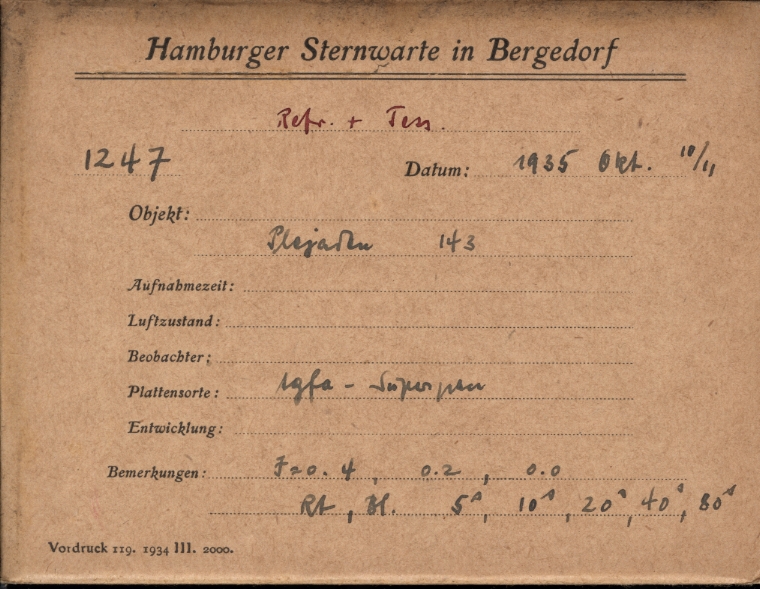 Hamburger Sternwarte in Bergedorf
Refr. + Tess.
1247 Datum: 1935 Okt. 10/11
Objekt:
Plejaden 143
Aufnahmezeit:
Luftzustand:
Beobachter:
Plattensorte: Agfa - Superpan
Entwicklung:
Bemerkungen: F=0.4, 0.2, 0.0
Rt, Bl. 5ˢ, 10ˢ, 20ˢ, 40ˢ, 80ˢ
Vordruck 119. 1934 III. 2000.